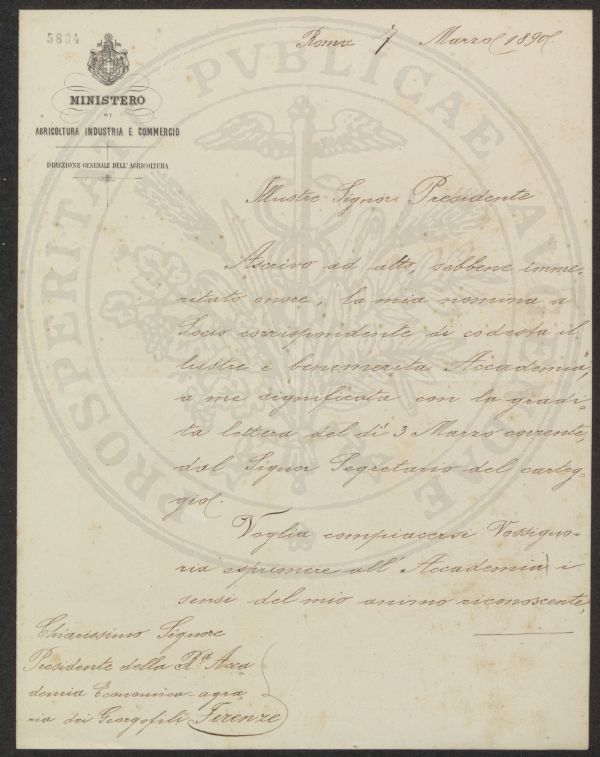 5804
MINISTERO
DI
AGRICOLTURA INDUSTRIA E COMMERCIO
DIREZIONE GENERALE DELL'AGRICOLTURA
Roma 7 Marzo 1890
Illustre Signor Presidente
Ascrivo ad alto, sebbene imme-
ritato onore, la mia nomina a
Socio corrispondente di codesta il
lustre e benemerita Accademia,
a me significata con la gradi-
ta lettera del dì 3 Marzo corrente,
dal Signor Segretario del carteg-
gio.
Voglia compiacersi Vossigno-
ria esprimere all'Accademia i
sensi del mio animo riconoscente,
Chiarissimo Signore
Presidente della R.a Acca
demia Economico-agra
ria dei Georgofili Firenze
PROSPERITATI PVBLICAE AVGENDAE